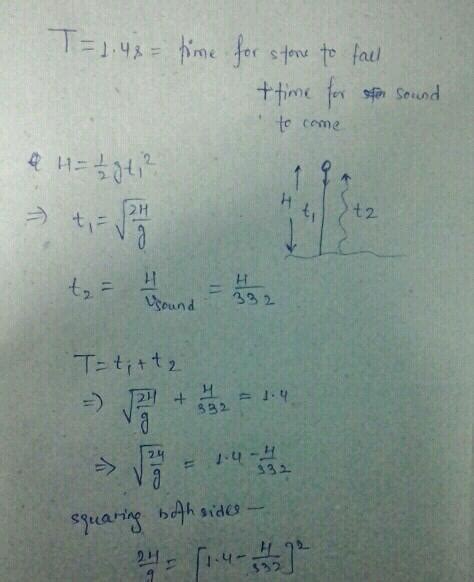 T = 1.4s = time for stone to fall
+ time for sound
to come
H = ½ g t₁²
⇒ t₁ = √(2H/g)
H t₁ t₂
t₂ = H/Vsound = H/332
T = t₁ + t₂
⇒ √(2H/g) + H/332 = 1.4
⇒ √(2H/g) = 1.4 - H/332
squaring both sides —
2H/g = [1.4 - H/332]²